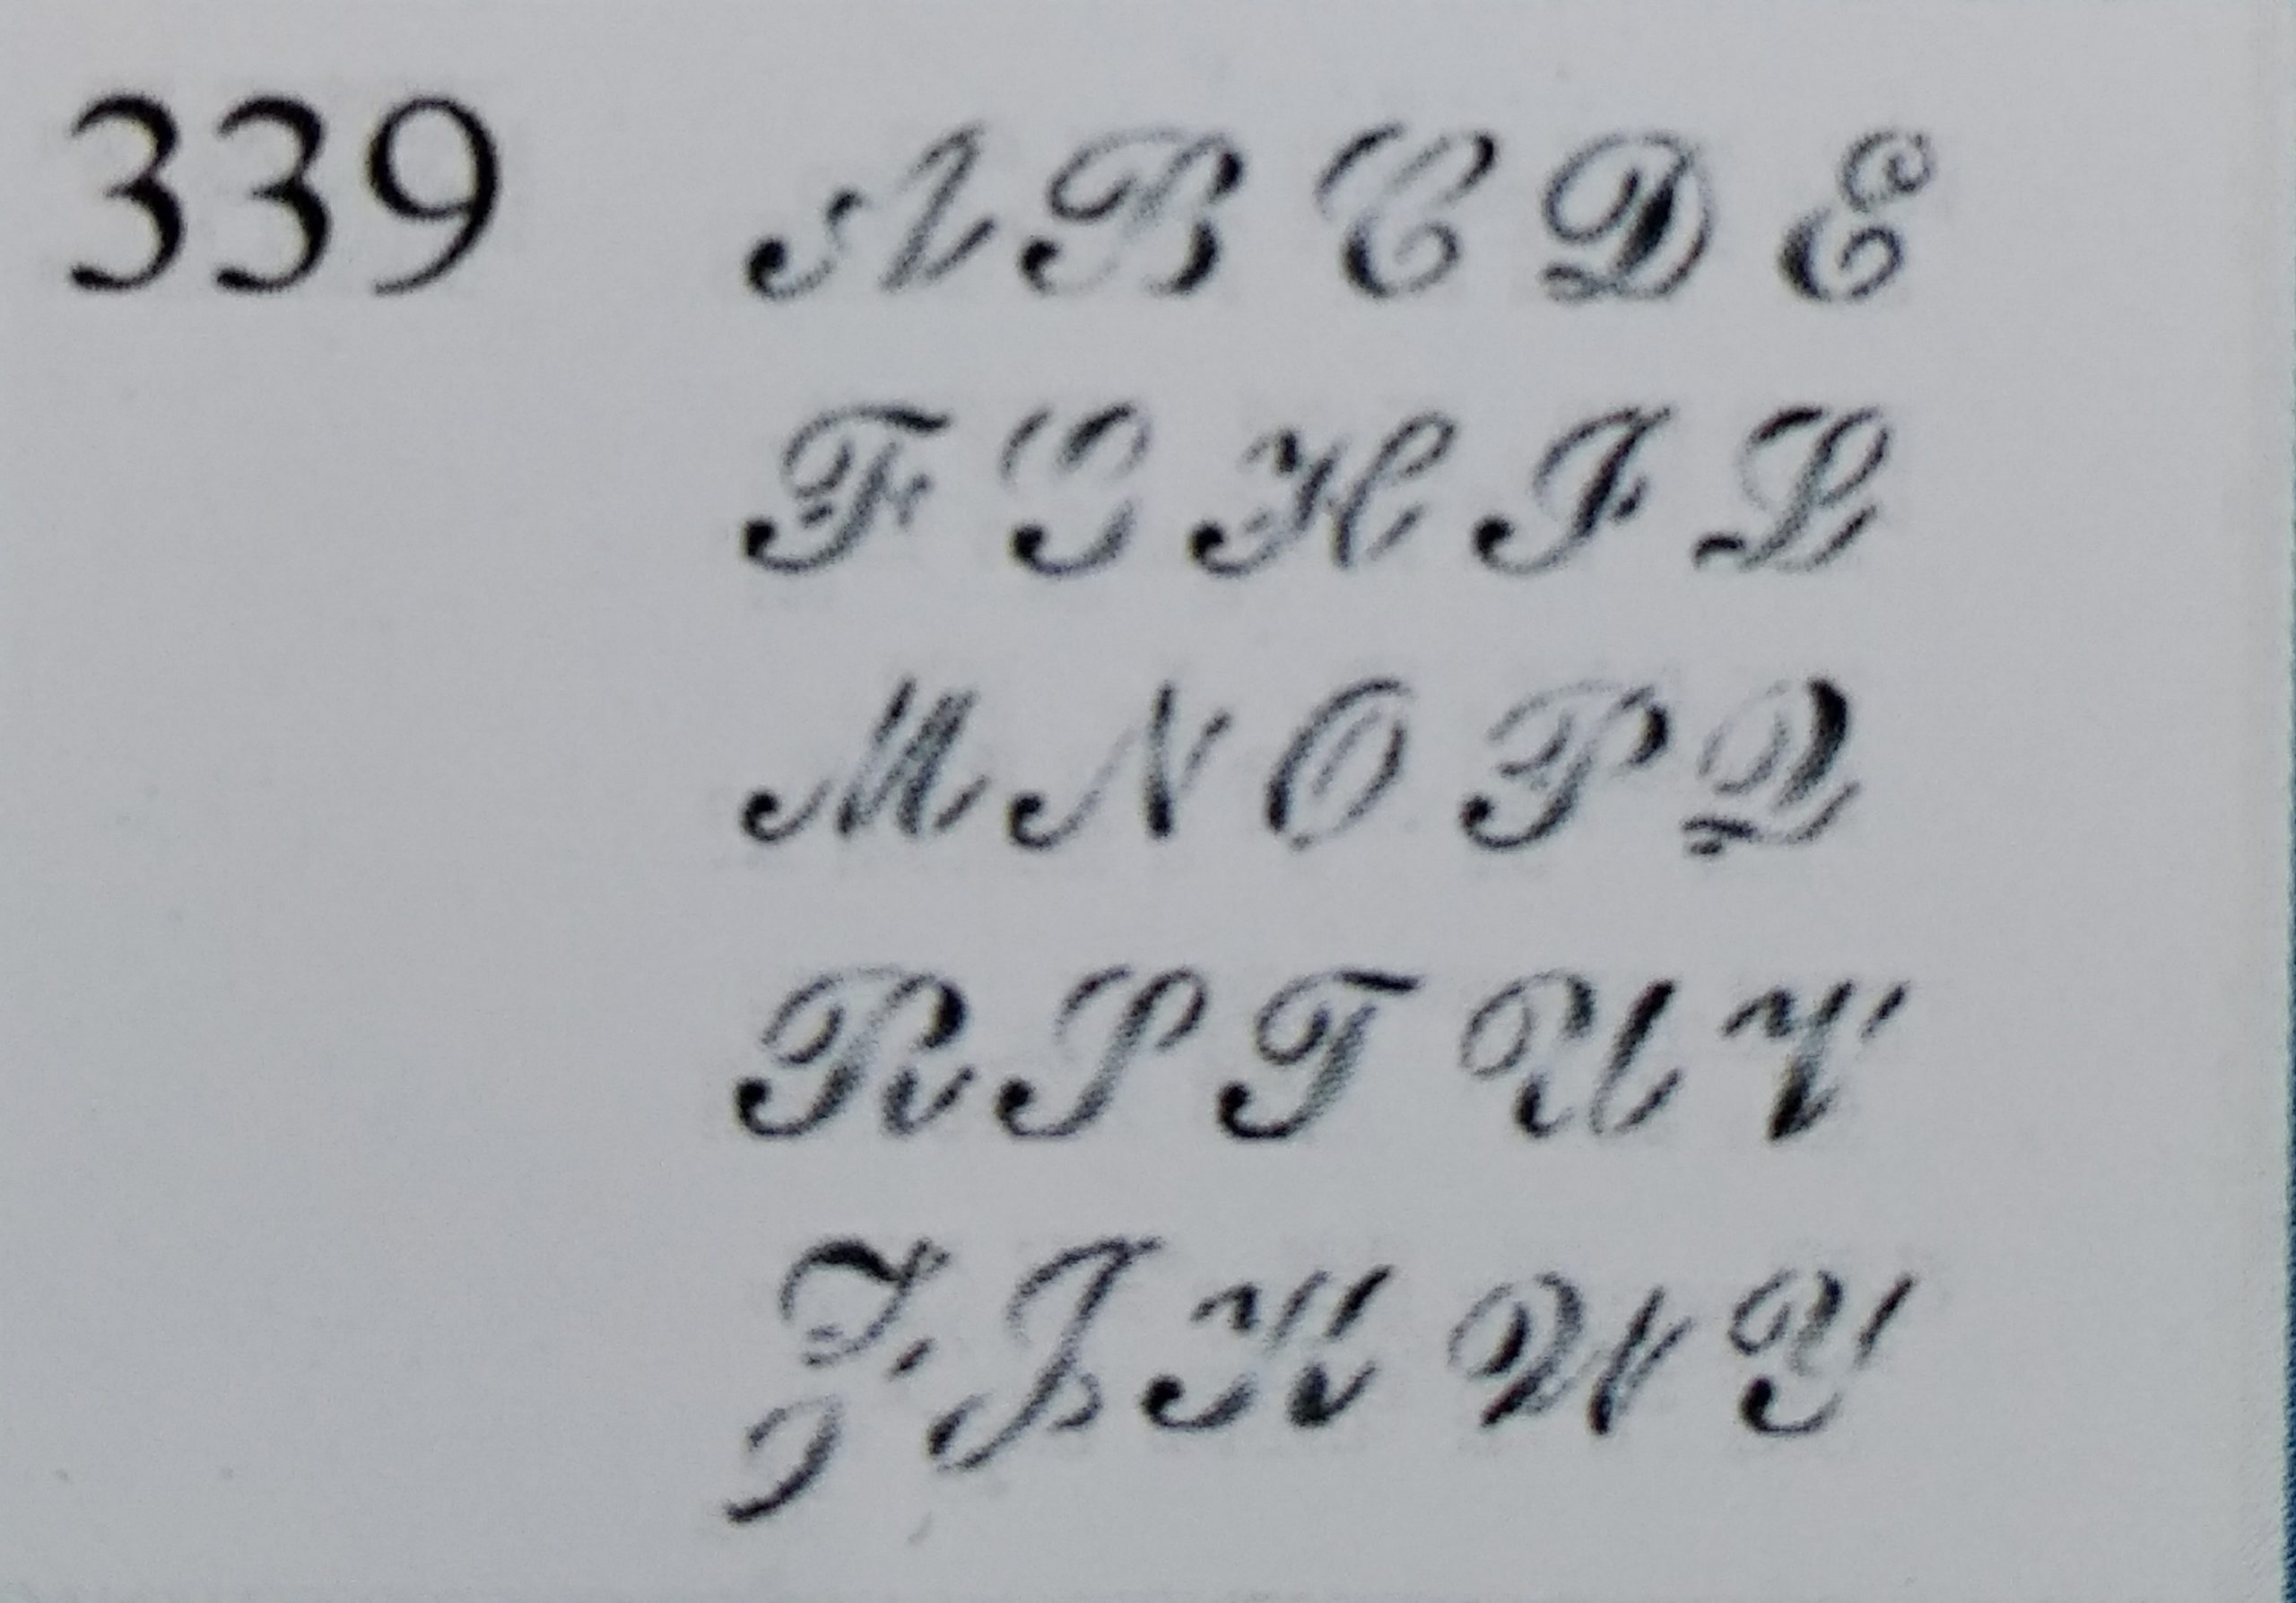 339 A B C D E
F G H I L
M N O P Q
R S T U V
Z J K W Y